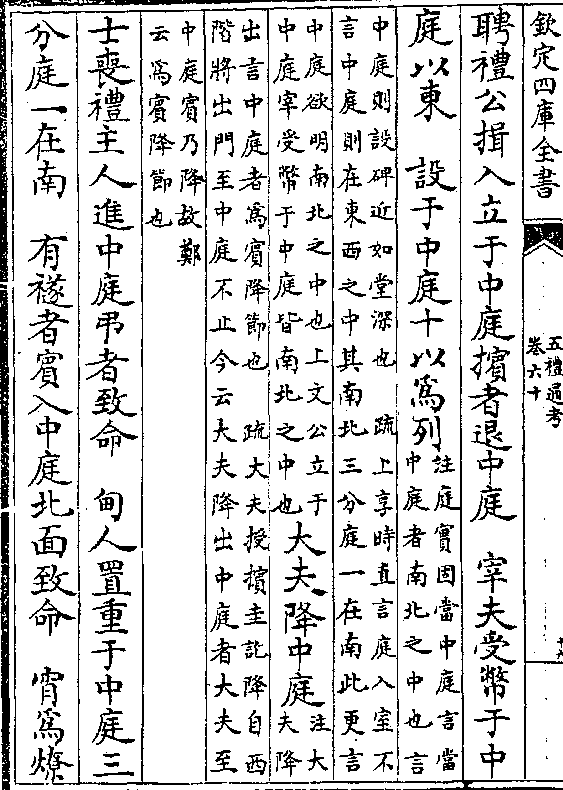 欽定四庫全書
五禮通考
卷六十
聘禮公揖入立于中庭擯者退中庭　宰夫受幣于中
庭以東　設于中庭十以爲列
註庭實固當中庭言當
中庭者南北之中也言
中庭則設碑近如堂深也　疏上享時直言庭入室不
言中庭則在東西之中其南北三分庭一在南此更言
中庭欲明南北之中也上文公立于
中庭宰受幣于中庭皆南北之中也
大夫降中庭
注大
夫降
出言中庭者爲賓降節也　疏大夫授擯圭訖降自西
階將出門至中庭不止今云大夫降出中庭者大夫至
中庭賓乃降故鄭
云爲賓降節也
士喪禮主人進中庭弔者致命　甸人置重于中庭三
分庭一在南　有襚者賓入中庭北面致命　宵爲燎